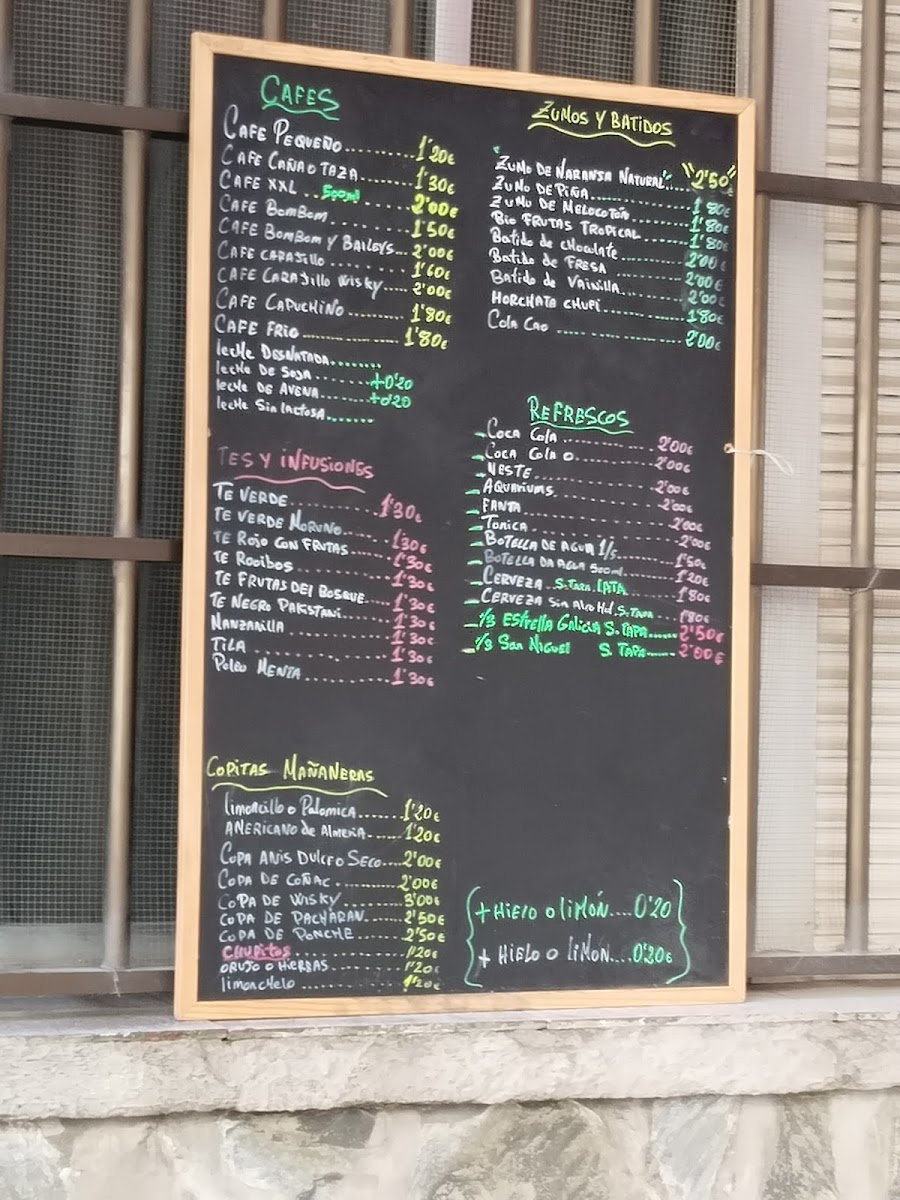 CAFES
CAFE PEQUEÑO.......1'20€
CAFE CAÑA O TAZA.......1'30€
CAFE XXL .. 500ml .... 2'00€
CAFE BomBom.......1'50€
CAFE BomBom Y BAILEYS...2'00€
CAFE CARAJILLO.......1'60€
CAFE CARAJILLO WISKY....2'00€
CAFE CAPUCHINO.......1'80€
CAFE FRIO.......1'80€
leche DESNATADA........
leche DE SOJA......+0'20
leche DE AVENA......+0'20
leche Sin lactosa.......
TES Y INFUSIONES
TE VERDE.......1'30€
TE VERDE MORUNO.......1'30€
TE ROJO CON FRUTAS.......1'30€
TE ROOIBOS.......1'30€
TE FRUTAS DEL BOSQUE....1'30€
TE NEGRO PAKSTANI.......1'30€
MANZANILLA.......1'30€
TILA.......1'30€
POLEO MENTA.......1'30€
COPITAS MAÑANERAS
limoncillo o Palomica......1'20€
AMERICANO de Almeria....1'20€
COPA ANIS DULCE O SECO....2'00€
COPA DE COÑAC.......2'00€
COPA DE WISKY.......3'00€
COPA DE PACHARAN.......2'50€
COPA DE PONCHE.......2'50€
CHUPITOS.......1'20€
ORUJO O HIERBAS.......1'20€
limonchelo.......1'20€
ZUMOS Y BATIDOS
ZUMO DE NARANJA NATURAL...2'50
ZUMO DE PIÑA.......1'80€
ZUMO DE MELOCOTON.......1'80€
Bio FRUTAS TROPICAL.......1'80€
Batido de chocolate.......2'00€
Batido de FRESA.......2'00€
Batido de Vainilla.......2'00€
HORCHATA CHUFI.......1'80€
Cola Cao.......2'00€
REFRESCOS
COCA COLA.......2'00€
COCA COLA O.......2'00€
NESTE.......2'00€
AQUARIUMS.......2'00€
FANTA.......2'00€
TONICA.......2'00€
BOTELLA DE AGUA 1/5......1'50€
BOTELLA DA AGUA 500ml....1'20€
CERVEZA S.TAPA. LATA.......1'80€
CERVEZA Sin Alcohol. S.TAPA 1'80€
1/3 ESTRELLA GALICIA S. TAPA......2'50€
1/3 San Miguel S. TAPA......2'00€
+ HIELO O LIMÓN....0'20
+ HIELO O LIMON....0'20€